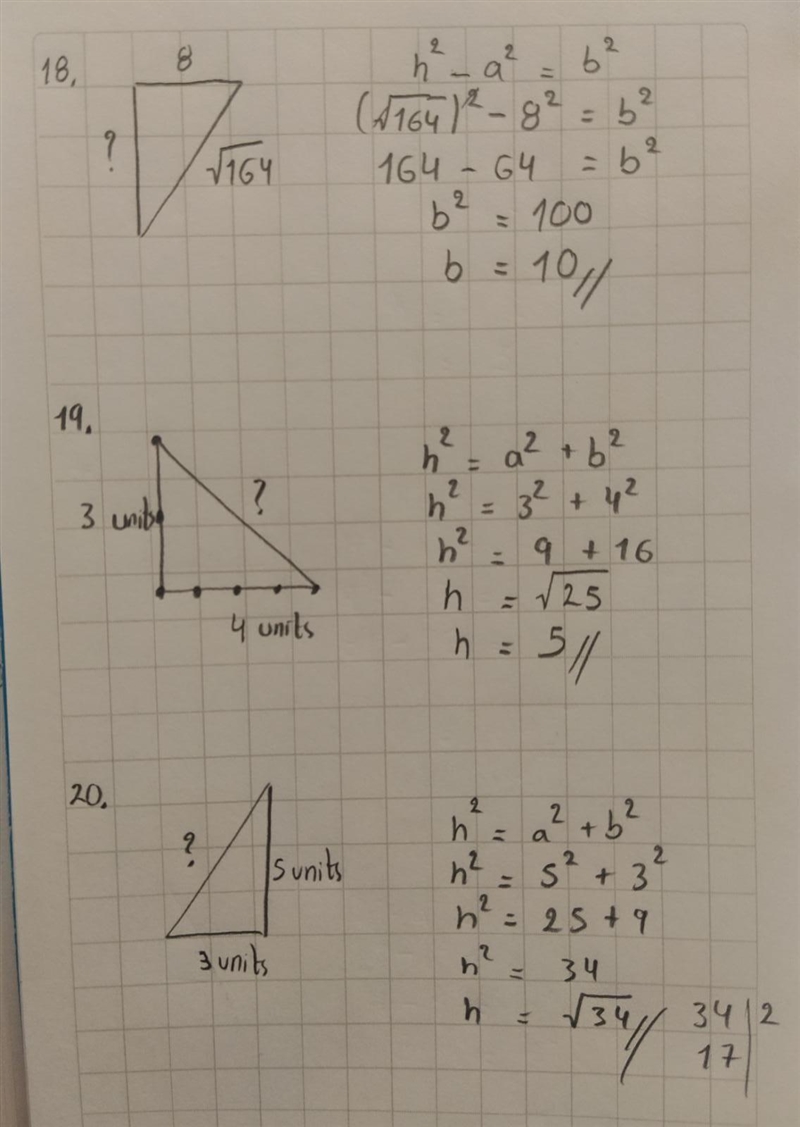 18.
8
?
√164
h² - a² = b²
(√164)² - 8² = b²
164 - 64 = b²
b² = 100
b = 10//
19.
3 units
?
4 units
h² = a² + b²
h² = 3² + 4²
h² = 9 + 16
h = √25
h = 5//
20.
?
5 units
3 units
h² = a² + b²
h² = 5² + 3²
h² = 25 + 9
h² = 34
h = √34//
34|2
17|